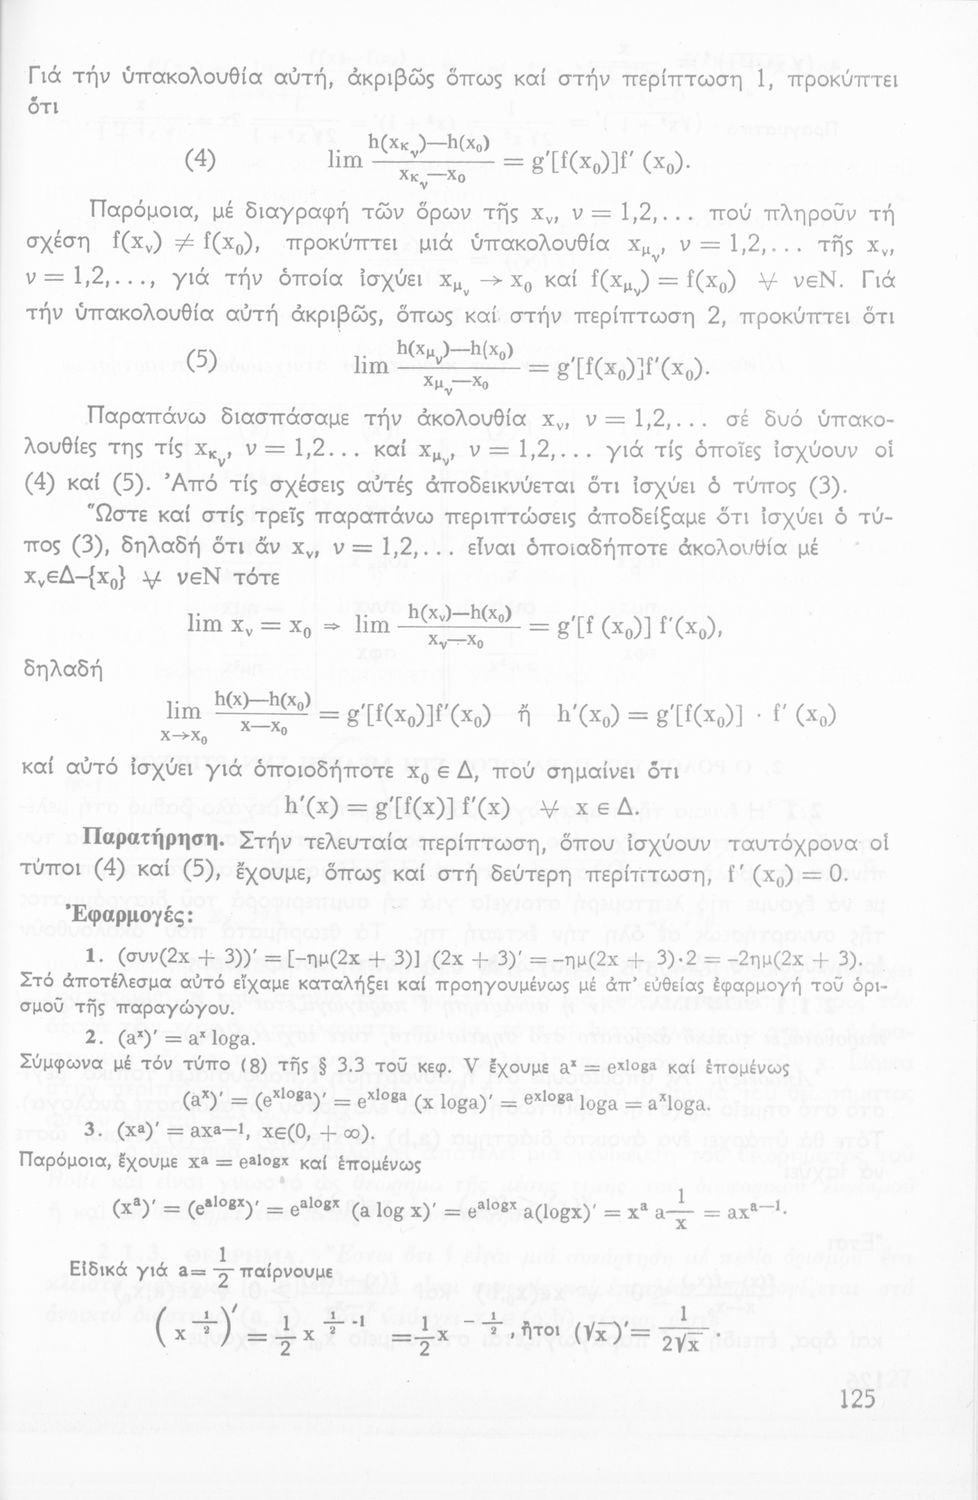 Γιά τήν ὑπακολουθία αὐτή, ἀκριβῶς ὅπως καί στήν περίπτωση 1, προκύπτει
ὅτι
(4) lim h(x_{κ_ν})—h(x₀) / x_{κ_ν}—x₀ = g′[f(x₀)]f′ (x₀).
Παρόμοια, μέ διαγραφή τῶν ὅρων τῆς x_ν, ν = 1,2,... πού πληροῦν τή
σχέση f(x_ν) ≠ f(x₀), προκύπτει μιά ὑπακολουθία x_{μ_ν}, ν = 1,2,... τῆς x_ν,
ν = 1,2,..., γιά τήν ὁποία ἰσχύει x_{μ_ν} → x₀ καί f(x_{μ_ν}) = f(x₀) ∀ νεN. Γιά
τήν ὑπακολουθία αὐτή ἀκριβῶς, ὅπως καί στήν περίπτωση 2, προκύπτει ὅτι
(5) lim h(x_{μ_ν})—h(x₀) / x_{μ_ν}—x₀ = g′[f(x₀)]f′(x₀).
Παραπάνω διασπάσαμε τήν ἀκολουθία x_ν, ν = 1,2,... σέ δυό ὑπακο-
λουθίες της τίς x_{κ_ν}, ν = 1,2... καί x_{μ_ν}, ν = 1,2,... γιά τίς ὁποῖες ἰσχύουν οἱ
(4) καί (5). Ἀπό τίς σχέσεις αὐτές ἀποδεικνύεται ὅτι ἰσχύει ὁ τύπος (3).
Ὥστε καί στίς τρεῖς παραπάνω περιπτώσεις ἀποδείξαμε ὅτι ἰσχύει ὁ τύ-
πος (3), δηλαδή ὅτι ἄν x_ν, ν = 1,2,... εἶναι ὁποιαδήποτε ἀκολουθία μέ
x_νεΔ–{x₀} ∀ νεN τότε
lim x_ν = x₀ ⇒ lim h(x_ν)—h(x₀) / x_ν—x₀ = g′[f (x₀)] f′(x₀),
δηλαδή
lim x→x₀ h(x)—h(x₀) / x—x₀ = g′[f(x₀)]f′(x₀) ἤ h′(x₀) = g′[f(x₀)] · f′ (x₀)
καί αὐτό ἰσχύει γιά ὁποιοδήποτε x₀ ε Δ, πού σημαίνει ὅτι
h′(x) = g′[f(x)] f′(x) ∀ x ε Δ.
Παρατήρηση. Στήν τελευταία περίπτωση, ὅπου ἰσχύουν ταυτόχρονα οἱ
τύποι (4) καί (5), ἔχουμε, ὅπως καί στή δεύτερη περίπτωση, f′ (x₀) = 0.
Ἐφαρμογές:
1. (συν(2x + 3))′ = [-ημ(2x + 3)] (2x + 3)′ = -ημ(2x + 3)·2 = -2ημ(2x + 3).
Στό ἀποτέλεσμα αὐτό εἴχαμε καταλήξει καί προηγουμένως μέ ἀπ’ εὐθείας ἐφαρμογή τοῦ ὁρι-
σμοῦ τῆς παραγώγου.
2. (aˣ)′ = aˣ loga.
Σύμφωνα μέ τόν τύπο (8) τῆς § 3.3 τοῦ κεφ. V ἔχουμε aˣ = e^{xloga} καί ἑπομένως
(aˣ)′ = (e^{xloga})′ = e^{xloga} (x loga)′ = e^{xloga} loga = aˣloga.
3. (xᵃ)′ = axᵃ⁻¹, xε(0, +∞).
Παρόμοια, ἔχουμε xᵃ = e^{alogx} καί ἑπομένως
(xᵃ)′ = (e^{alogx})′ = e^{alogx} (a log x)′ = e^{alogx} a(logx)′ = xᵃ a 1/x = axᵃ⁻¹.
Εἰδικά γιά a= 1/2 παίρνουμε
(x^{1/2})′ = 1/2 x^{1/2 -1} = 1/2 x^{-1/2}, ἤτοι (√x)′ = 1/(2√x).
125